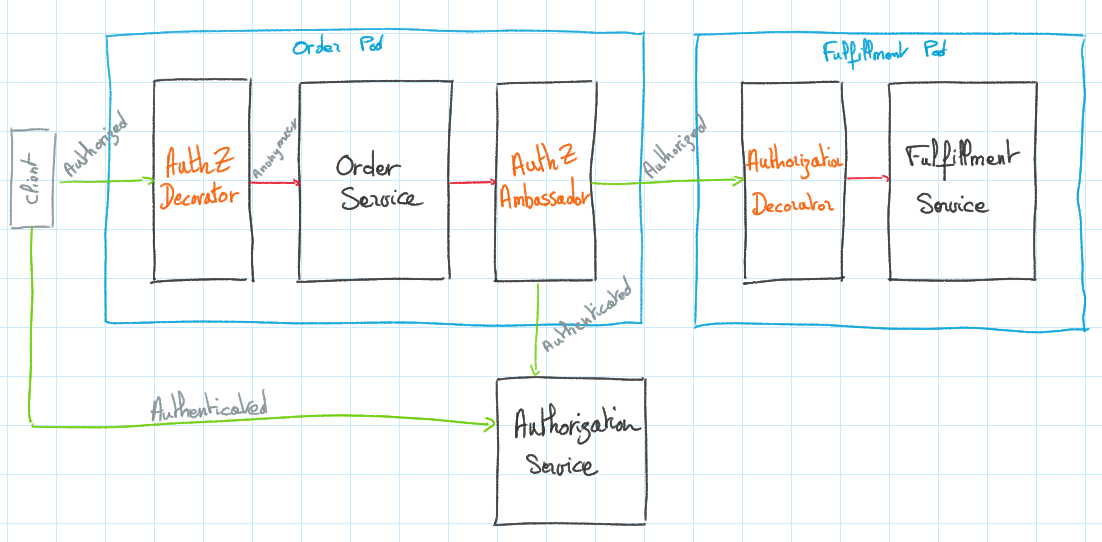 Order Pod
Fulfillment Pod
Client
Authorized
AuthZ
Decorator
Anonymous
Order
Service
AuthZ
Ambassador
Authorized
Authorization
Decorator
Fulfillment
Service
Authenticated
Authenticated
Authorization
Service